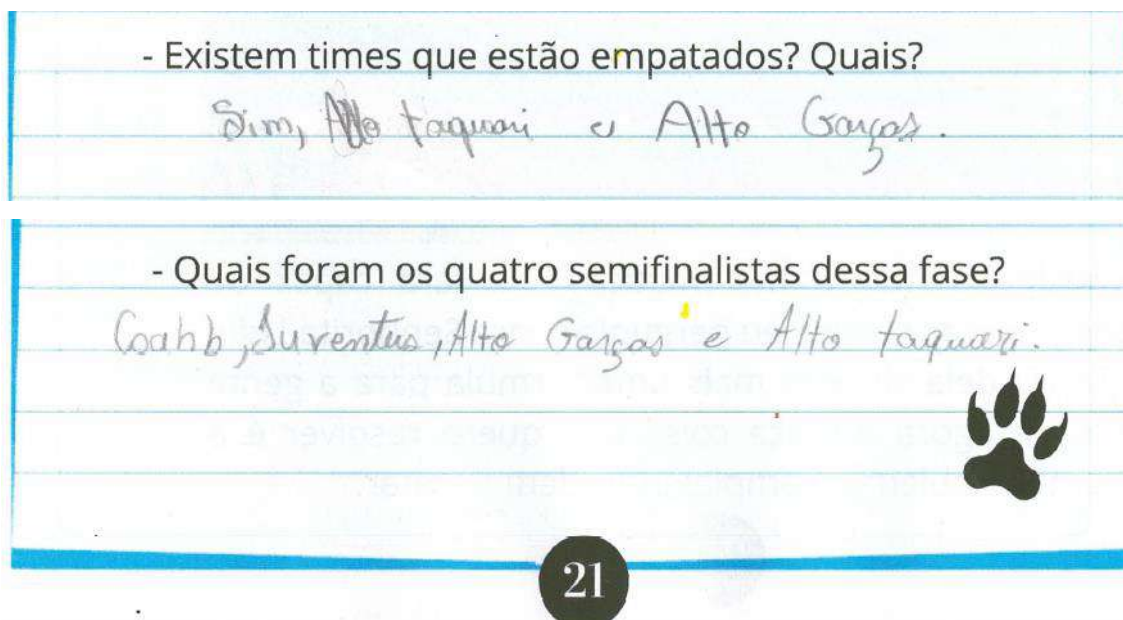 - Existem times que estão empatados? Quais?
Sim, Alto taquari e Alto Garças.
- Quais foram os quatro semifinalistas dessa fase?
Coahb, Juventus, Alto Garças e Alto taquari.
21